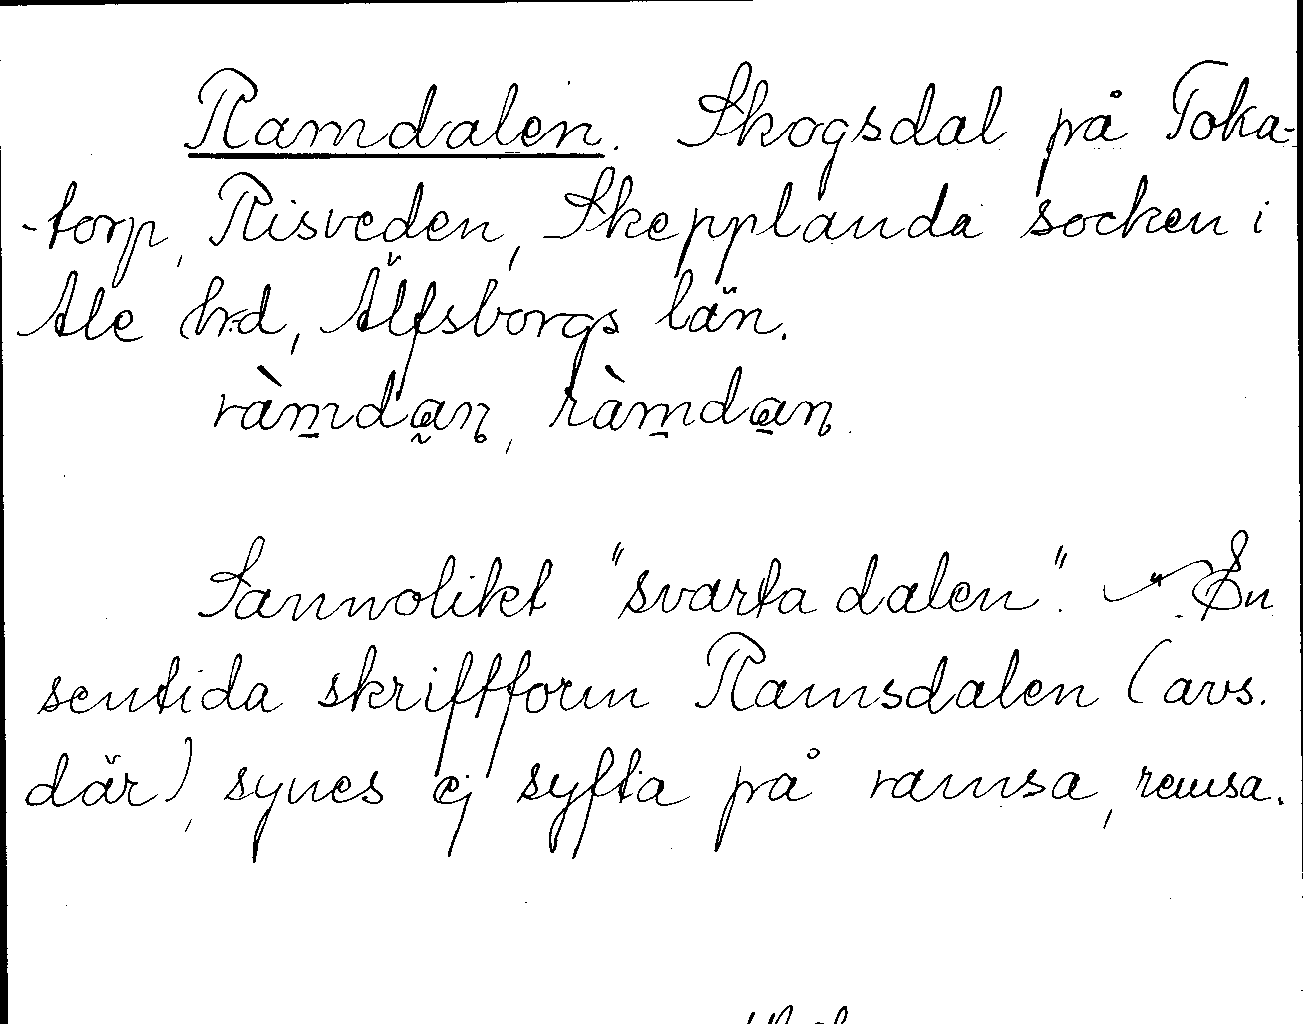 Ramdalen. Skogsdal på Toka-
-torp, Risveden, Skepplanda socken i
Ale hd, Älfsborgs län.
ràmdan, ràmdan.
Sannolikt "svarta dalen". En
sentida skriftform Ramsdalen (avs.
där), synes ej syfta på ramsa, remsa.